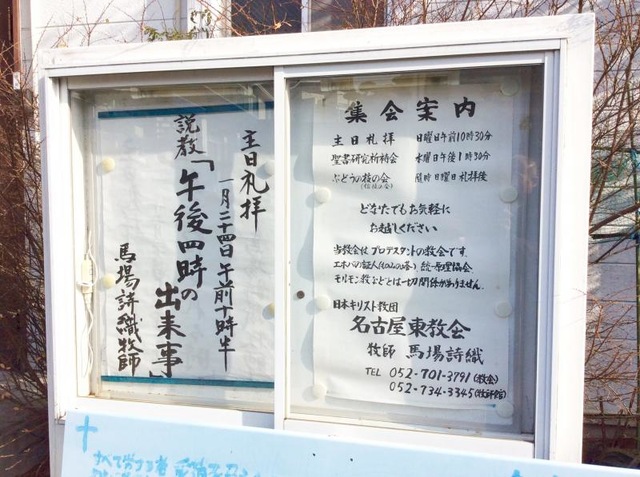 主日礼拝
一月二十四日午前十時半
説教「午後四時の出来事」
馬場詩織牧師
集会案内
主日礼拝 日曜日午前10時30分
聖書研究祈祷会 水曜日午後1時30分
ぶどうの枝の会 随時日曜日礼拝後
どなたでもお気軽に
お越しください
当教会は プロテスタントの教会です。
エホバの証人(ものみの塔) 統一原理協会、
モリモン教などとは一切関係がありません。
日本キリスト教団
名古屋東教会
牧師 馬場詩織
TEL 052-701-3791(教会)
052-734-3345(牧師館)
すべて労する者